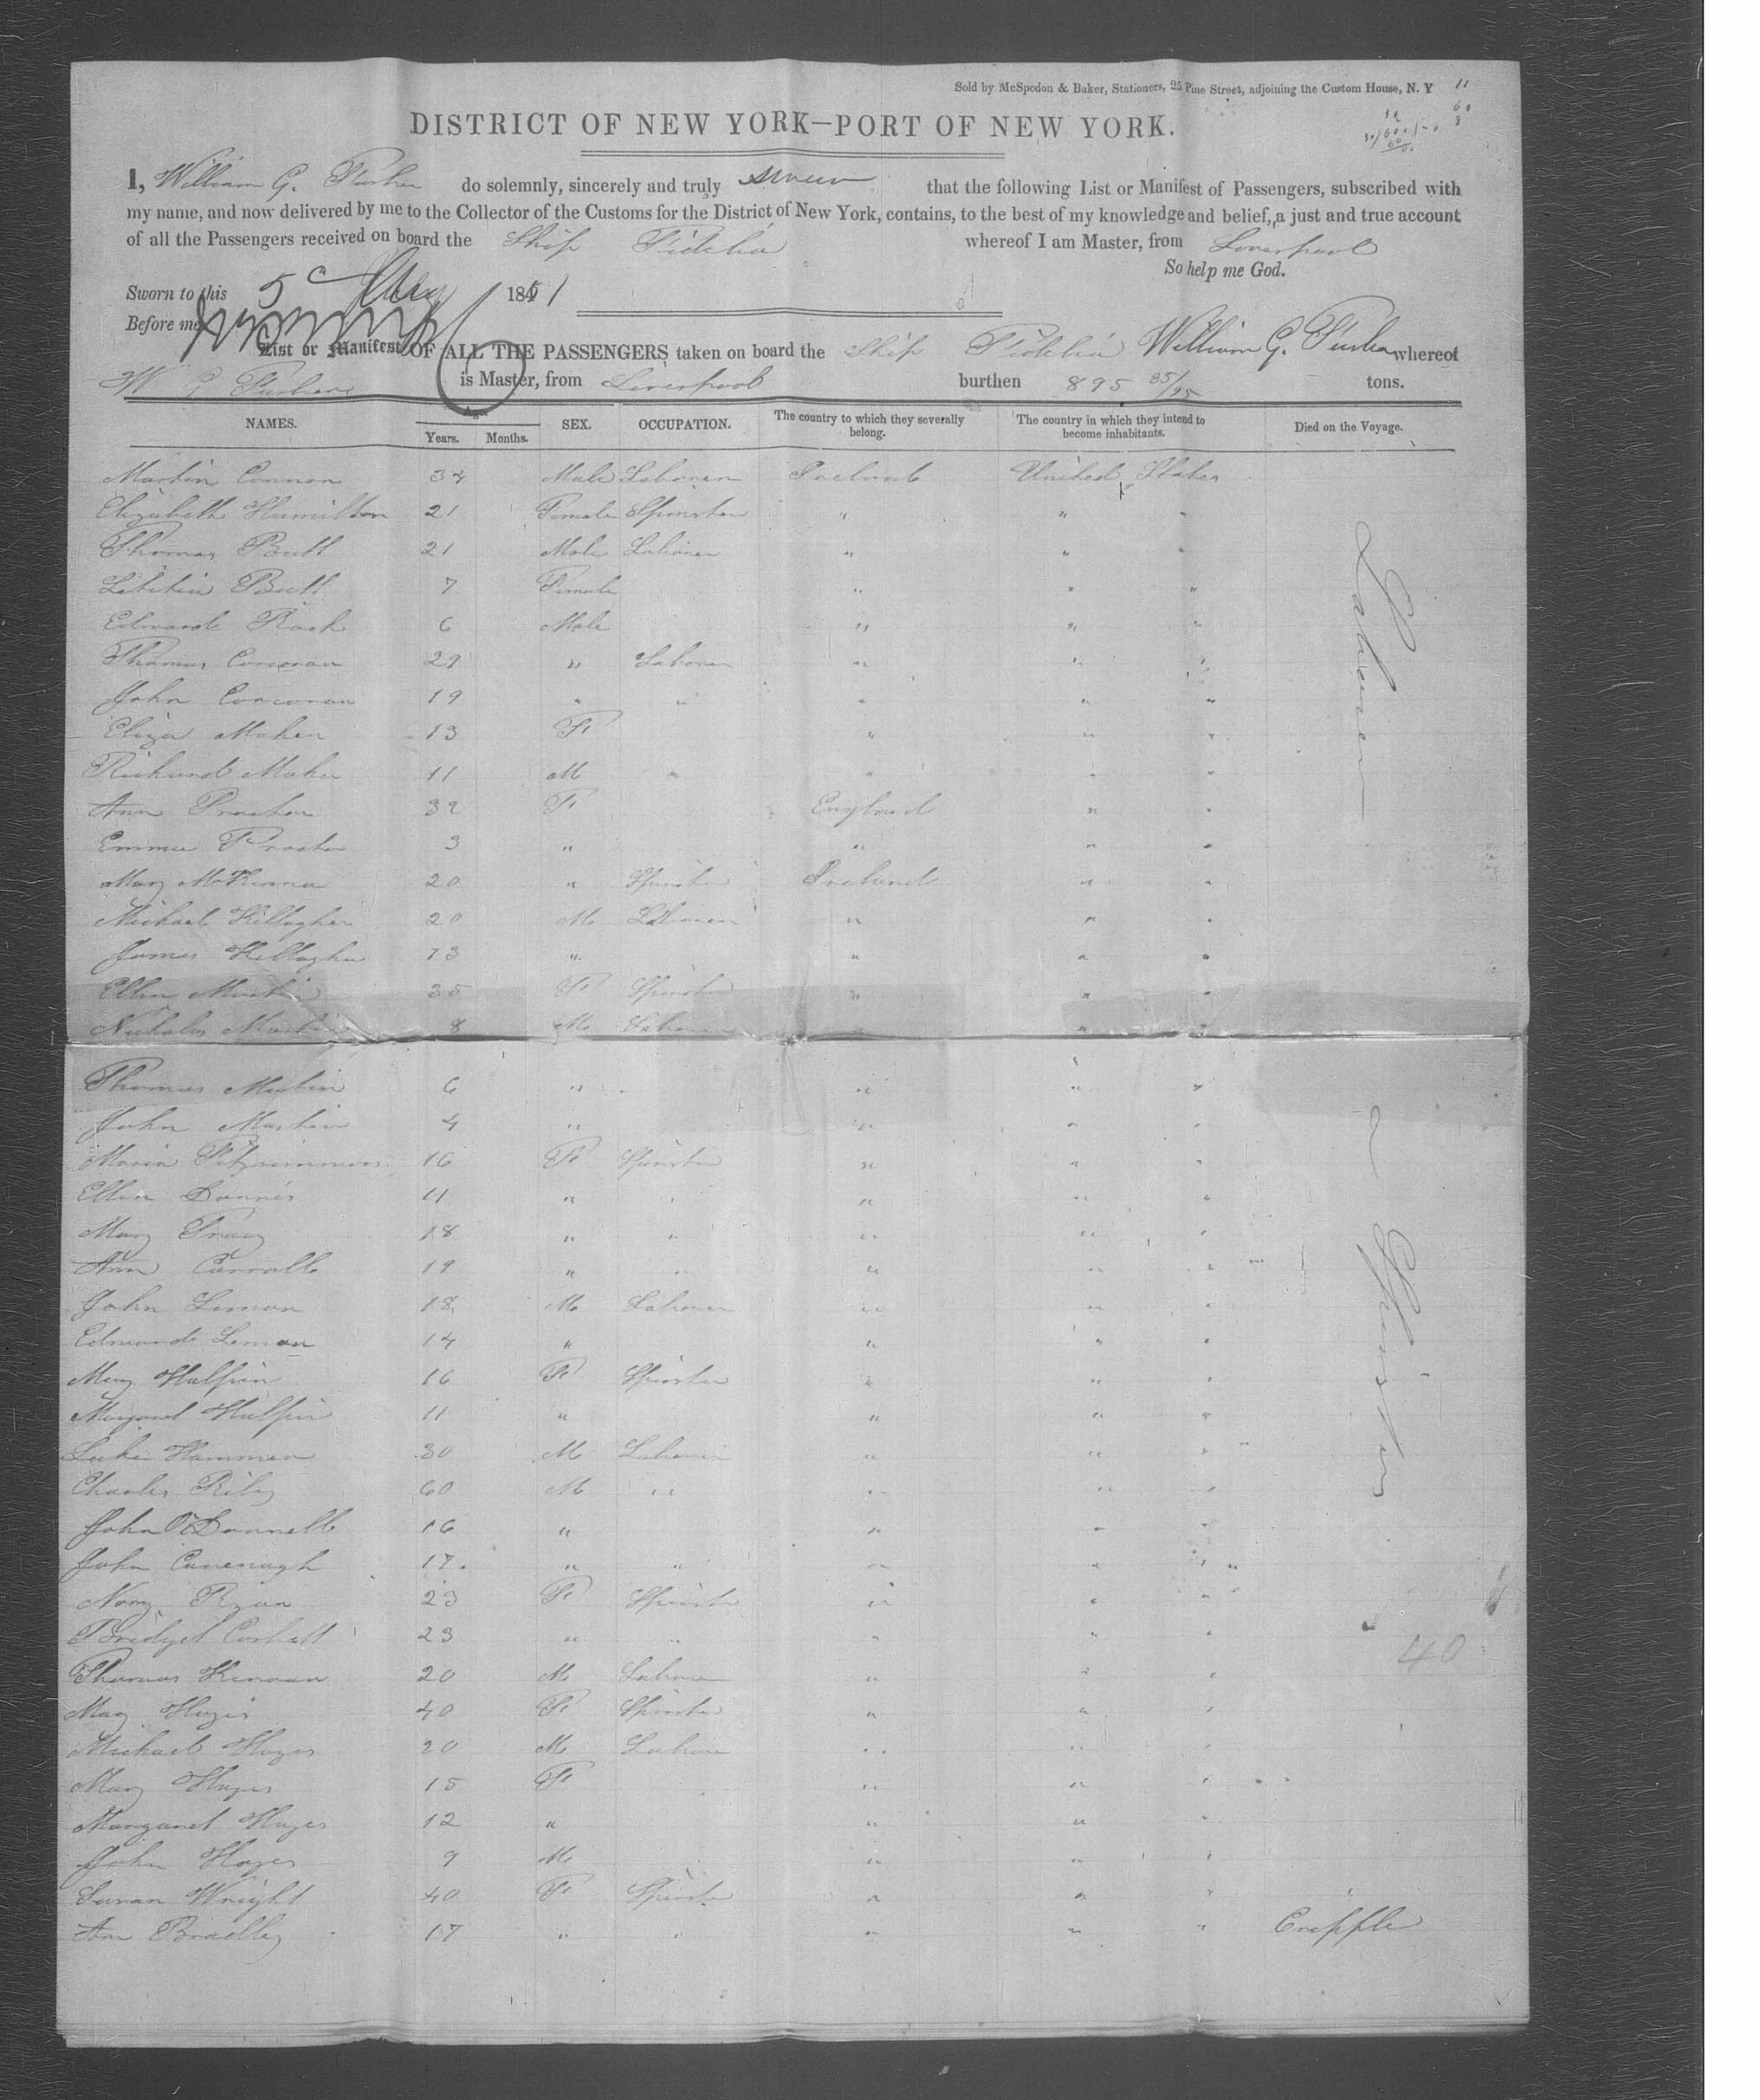 Sold by McSpedon & Baker, Stationers, 25 Pine Street, adjoining the Custom House, N. Y 11
DISTRICT OF NEW YORK—PORT OF NEW YORK.
I, William G. do solemnly, sincerely and truly swear that the following List or Manifest of Passengers, subscribed with
my name, and now delivered by me to the Collector of the Customs for the District of New York, contains, to the best of my knowledge and belief, a just and true account
of all the Passengers received on board the Ship Fidelia whereof I am Master, from Liverpool
So help me God.
Sworn to this 5 1851
Before me
List or Manifest OF ALL THE PASSENGERS taken on board the Ship Fidelia William G. whereof
W G is Master, from Liverpool burthen 895 35/95 tons.
NAMES. Age. Years. Months. SEX. OCCUPATION. The country to which they severally belong. The country in which they intend to become inhabitants. Died on the Voyage.
Martin Connon 34 Male Laborer Ireland United States
Elizabeth Hamilton 21 Female Spinster " " "
Thomas Butt 21 Male Laborer " " "
Letitia Butt 7 Female " " "
Edward 6 Male " " "
Thomas Corcoran 29 " Laborer " " "
John Corcoran 19 " " " " "
Eliza Maher 13 F " " "
Richard Maher 11 M " " " "
Ann Procter 32 F England " "
Emma Procter 3 " " " "
Mary McKenna 20 " Spinster Ireland " "
Michael Killagher 20 M Laborer " " "
James Killagher 13 " " " "
Ellen Martin 35 F Spinster " " "
Nicholas Martin 8 M Laborer " " "
Thomas Martin 6 " " " "
John Martin 4 " " " "
Maria Fitzsimmons 16 F Spinster " " "
Ellen 11 " " " " "
Mary Tracy 18 " " " " "
Ann Carroll 19 " " " " "
John Leman 18 M Laborer " " "
Edward Leman 14 " " " "
Mary Halpin 16 F Spinster " " "
Margaret Halpin 11 " " " "
Luke Hamman 30 M Laborer " " "
Charles Riley 60 M " " " "
John O'Donnell 16 " " " "
John Cavenagh 17 " " " " "
Nory Ryan 23 F Spinster " " "
Bridget Corbett 23 " " " " "
Thomas Kinvan 20 M Labore " " "
Mary Hayes 40 F Spinster " " "
Michael Hayes 20 M Labore " " "
Mary Hayes 15 F " " "
Margaret Hayes 12 " " " "
John Hayes 9 M " " "
Susan Wright 40 F Spinster " " "
Ann Bradley 17 " " " " " Cripple
Laborer
a Spinster
40